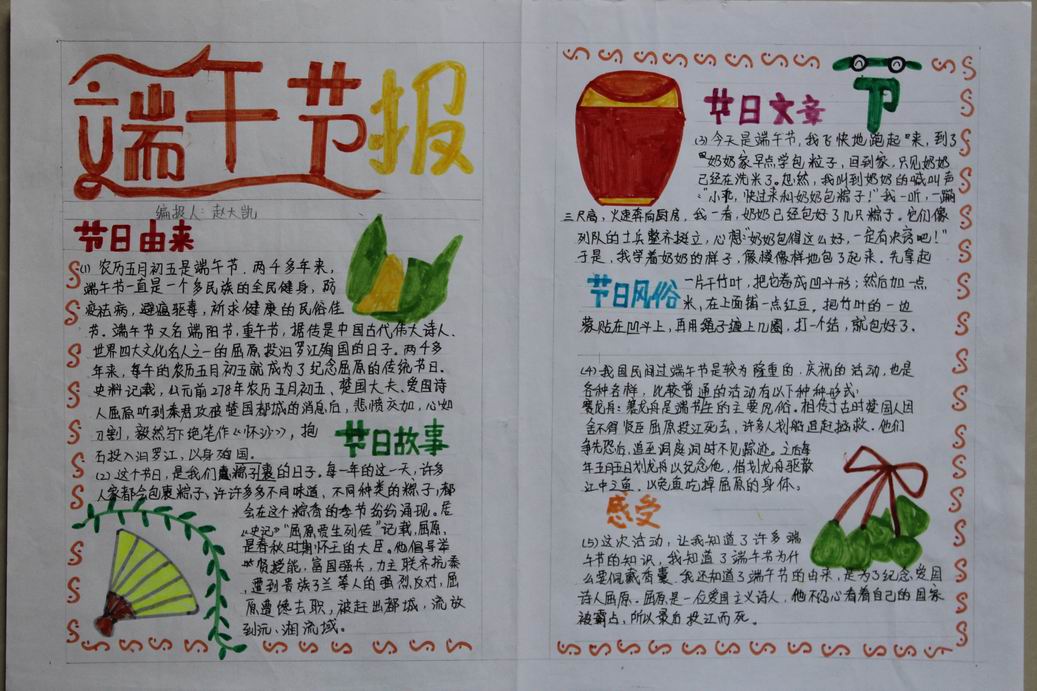 端午节报
编报人：赵大凯
节日由来
(1) 农历五月初五是端午节．两千多年来，
端午节一直是一个多民族的全民健身，防
疫祛病，避瘟驱毒，祈求健康的民俗佳
节．端午节又名端阳节，重午节，据传是中国古代伟大诗人、
世界四大文化名人之一的屈原投汨罗江殉国的日子。两千多
年来，每年的农历五月初五就成为了纪念屈原的传统节日。
史料记载，公元前278年农历五月初五、楚国大夫、爱国诗
人屈原听到秦君攻破楚国都城的消息后，悲愤交加，心如
刀割，毅然写下绝笔作《怀沙》，抱
石投入汨罗江，以身殉国．
节日故事
(2) 这个节日，是我们裹的日子．每一年的这一天，许多
人家都会包裹粽子，许许多多不同味道，不同种类的粽子，都
会在这个粽香的季节纷纷涌现。居
《史记》"屈原贾生列传"记载，屈原，
是春秋时期怀王的大臣。他倡导举
贤授能，富国强兵，力主联齐抗秦
，遭到贵族子兰等人的强烈反对，屈
原遭馋去职，被赶出都城，流放
到沅、湘流域。
节
节日文章
(3) 今天是端午节，我飞快地跑起来，到了
奶奶家早点学包粒子，回到家，只见奶奶
已经在洗米了。忽然，我叫到奶奶的喊叫声
："小乖，快过来和奶奶包粽子！"我一听，一蹦
三尺高，火速奔向厨房，我一看，奶奶已经包好了几只粽子．它们像
列队的士兵整齐挺立，心想："奶奶包得这么好，一定有决窍吧！"
于是，我学着奶奶的样子，像模像样地包了起来．先拿起
节日风俗
一片干竹叶，把它卷成凹斗形；然后加一点
米，在上面铺一点红豆．把竹叶的一边
紧贴在凹斗上，再用绳子缠上几圈，打一个结，就包好了．
(4) 我国民间过端午节是较为隆重的．庆祝的活动，也是
各种各样，比较普通的活动有以下种种形式：
赛龙舟：赛龙舟是端午节的主要风俗。相传于古时楚国人因
舍不得贤臣屈原投江死去，许多人划船追赶拯救．他们
争先恐后，追至洞庭湖时不见踪迹。之后每
年五月五日划龙舟以纪念他，借划龙舟驱散
江中之鱼．以免鱼吃掉屈原的身体。
感受
(5) 这次活动，让我知道了许多端
午节的知识，我知道了端午节为什
么要佩戴香囊．我还知道了端午节的由来，是为了纪念爱国
诗人屈原．屈原是一位爱国主义诗人，他不忍心看着自己的国家
被霸占，所以最后投江而死。